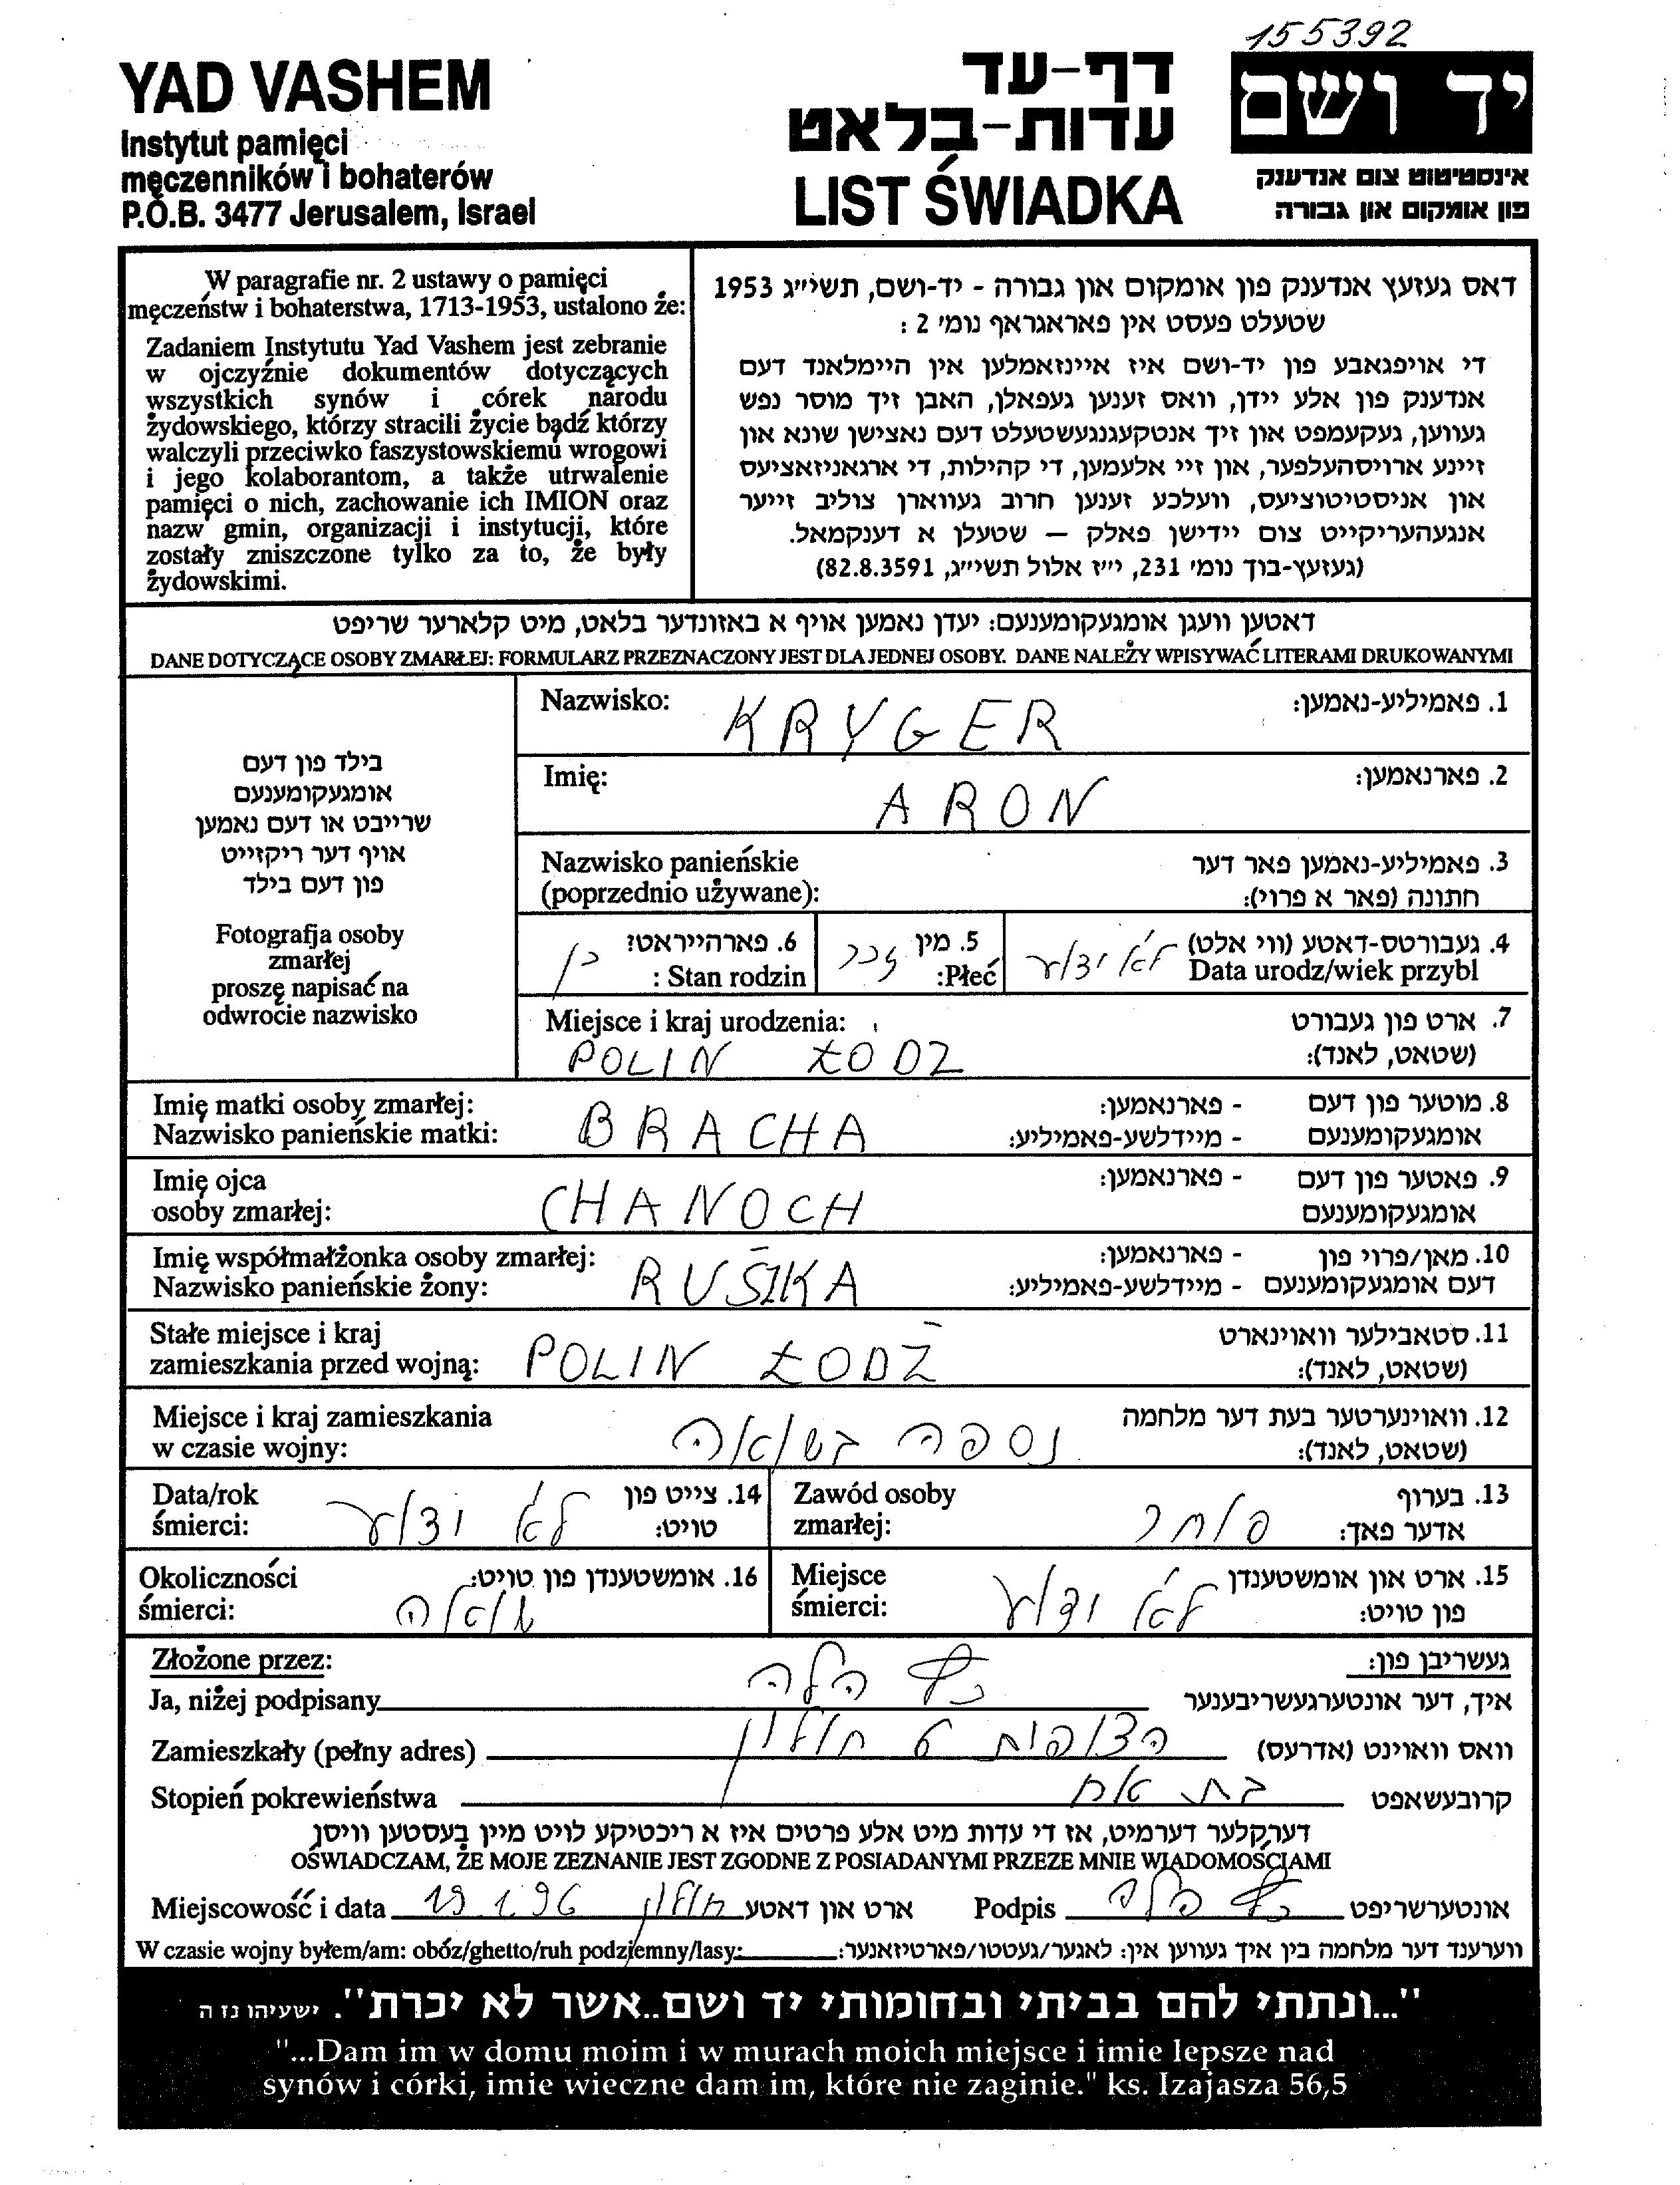 155392
YAD VASHEM
Instytut pamięci
męczenników i bohaterów
P.O.B. 3477 Jerusalem, Israel
דף-עד
עדות-בלאט
LIST ŚWIADKA
יד ושם
אינסטיטוט צום אנדענק
פון אומקום און גבורה
W paragrafie nr. 2 ustawy o pamięci
męczeństw i bohaterstwa, 1713-1953, ustalono że:
Zadaniem Instytutu Yad Vashem jest zebranie
w ojczyźnie dokumentów dotyczących
wszystkich synów i córek narodu
żydowskiego, którzy stracili życie bądź którzy
walczyli przeciwko faszystowskiemu wrogowi
i jego kolaborantom, a także utrwalenie
pamięci o nich, zachowanie ich IMION oraz
nazw gmin, organizacji i instytucji, które
zostały zniszczone tylko za to, że były
żydowskimi.
דאס געזעץ אנדענק פון אומקום און גבורה - יד-ושם, תשי"ג 1953
שטעלט פעסט אין פאראגראף נומ' 2 :
די אויפגאבע פון יד-ושם איז איינזאמלען אין היימלאנד דעם
אנדענק פון אלע יידן, וואס זענען געפאלן, האבן זיך מוסר נפש
געווען, געקעמפט און זיך אנטקעגנגעשטעלט דעם נאצישן שונא און
זיינע ארויסהעלפער, און זיי אלעמען, די קהילות, די ארגאניזאציעס
און אניסטיטוציעס, וועלכע זענען חרוב געווארן צוליב זייער
אנגעהעריקייט צום יידישן פאלק – שטעלן א דענקמאל.
(געזעץ-בוך נומ' 231, י"ז אלול תשי"ג, 82.8.3591)
דאטען וועגן אומגעקומענעם: יעדן נאמען אויף א באזונדער בלאט, מיט קלארער שריפט
DANE DOTYCZĄCE OSOBY ZMARŁEJ: FORMULARZ PRZEZNACZONY JEST DLA JEDNEJ OSOBY. DANE NALEŻY WPISYWAĆ LITERAMI DRUKOWANYMI
בילד פון דעם
אומגעקומענעם
שרייבט או דעם נאמען
אויף דער ריקזייט
פון דעם בילד
Fotografja osoby
zmarłej
proszę napisać na
odwrocie nazwisko
Nazwisko: KRYGER 1. פאמיליע-נאמען:
Imię: ARON 2. פארנאמען:
Nazwisko panieńskie 3. פאמיליע-נאמען פאר דער
(poprzednio używane): חתונה (פאר א פרוי):
4. געבורטס-דאטע (ווי אלט) לא ידוע
Data urodz/wiek przybl
5. מין זכר
Płeć:
6. פארהייראט? כן
Stan rodzin :
Miejsce i kraj urodzenia: 7. ארט פון געבורט
POLIN ŁODZ (שטאט, לאנד):
Imię matki osoby zmarłej: - פארנאמען: 8. מוטער פון דעם
Nazwisko panieńskie matki: BRACHA - מיידלשע-פאמיליע: אומגעקומענעם
Imię ojca - פארנאמען: 9. פאטער פון דעם
osoby zmarłej: CHANOCH אומגעקומענעם
Imię współmałżonka osoby zmarłej: - פארנאמען: 10. מאן/פרוי פון
Nazwisko panieńskie żony: RUSZKA - מיידלשע-פאמיליע: דעם אומגעקומענעם
Stałe miejsce i kraj 11. סטאבילער וואוינארט
zamieszkania przed wojną: POLIN ŁODZ (שטאט, לאנד):
Miejsce i kraj zamieszkania 12. וואוינערטער בעת דער מלחמה
w czasie wojny: נספה בשואה (שטאט, לאנד):
13. בערוף
אדער פאך: סוחר
Zawód osoby
zmarłej:
14. צייט פון
טויט: לא ידוע
Data/rok
śmierci:
15. ארט און אומשטענדן
פון טויט: לא ידוע
Miejsce
śmierci:
16. אומשטענדן פון טויט:
שואה
Okoliczności
śmierci:
Złożone przez: געשריבן פון:
Ja, niżej podpisany הלה איך, דער אונטערגעשריבענער
Zamieszkały (pełny adres) הצופית 6 חולון וואס וואוינט (אדרעס)
Stopień pokrewieństwa בת אח קרובעשאפט
דערקלער דערמיט, אז די עדות מיט אלע פרטים איז א ריכטיקע לויט מיין בעסטען וויסן
OŚWIADCZAM, ŻE MOJE ZEZNANIE JEST ZGODNE Z POSIADANYMI PRZEZE MNIE WIADOMOŚCIAMI
Miejscowość i data 19.1.96 חולון ארט און דאטע Podpis הלה אונטערשריפט
W czasie wojny byłem/am: obóz/ghetto/ruh podziemny/lasy: ווערענד דער מלחמה בין איך געווען אין: לאגער/געטטו/פארטיזאנער:
"...ונתתי להם בביתי ובחומותי יד ושם..אשר לא יכרת". ישעיהו נז ה
"...Dam im w domu moim i w murach moich miejsce i imie lepsze nad
synów i córki, imie wieczne dam im, które nie zaginie." ks. Izajasza 56,5